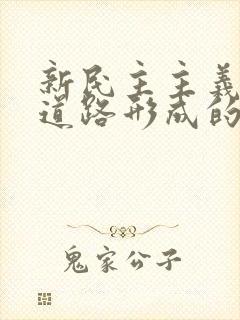 新民主主義
道路形成的
鬼家公子